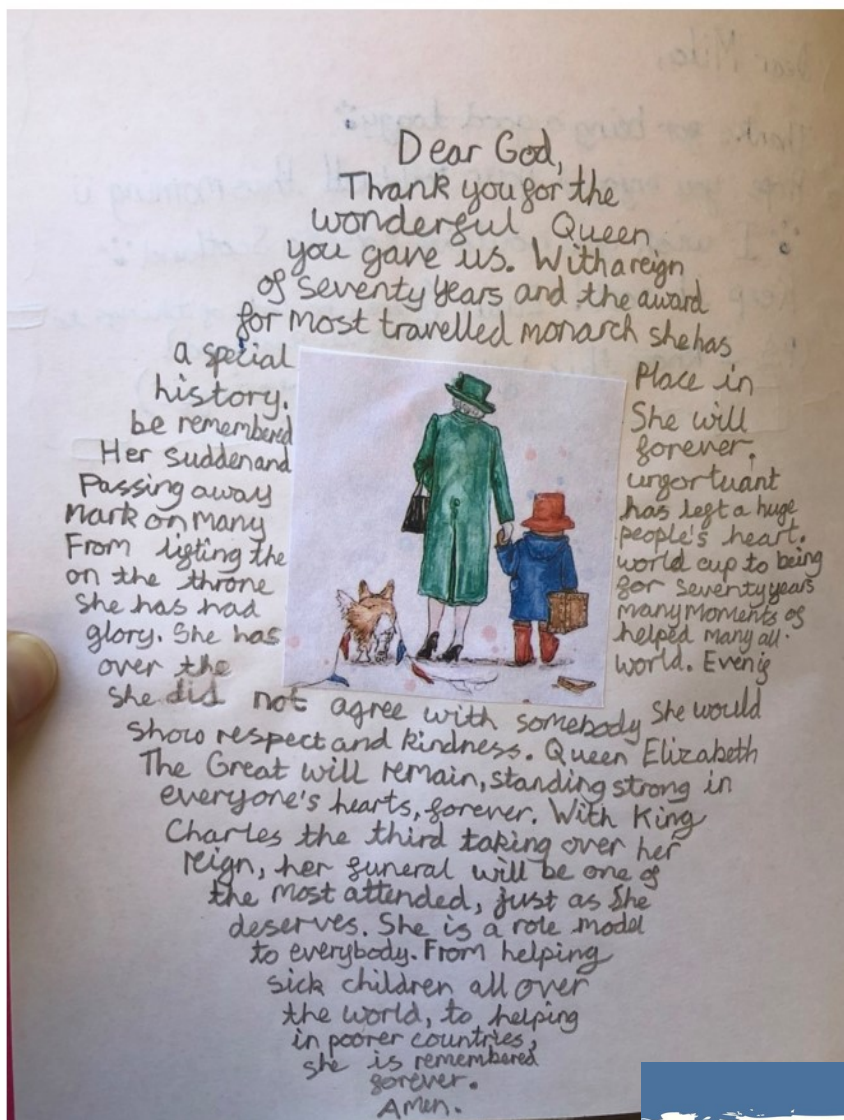 Dear God,
Thank you for the
wonderful Queen
you gave us. With a reign
of Seventy Years and the award
for most travelled monarch she has
a special Place in
history. She will
be remembered forever.
Her sudden and urgortuant
Passing away has left a huge
mark on many people's heart.
From lifting the world cup to being
on the throne for seventy years
she has had many moments of
glory. She has helped many all
over the world. Even if
she did not agree with somebody she would
show respect and kindness. Queen Elizabeth
The Great will remain, standing strong in
everyone's hearts, forever. With King
Charles the third taking over her
reign, her funeral will be one of
the most attended, just as she
deserves. She is a role model
to everybody. From helping
sick children all over
the world, to helping
in poorer countries,
she is remembered
forever.
Amen.